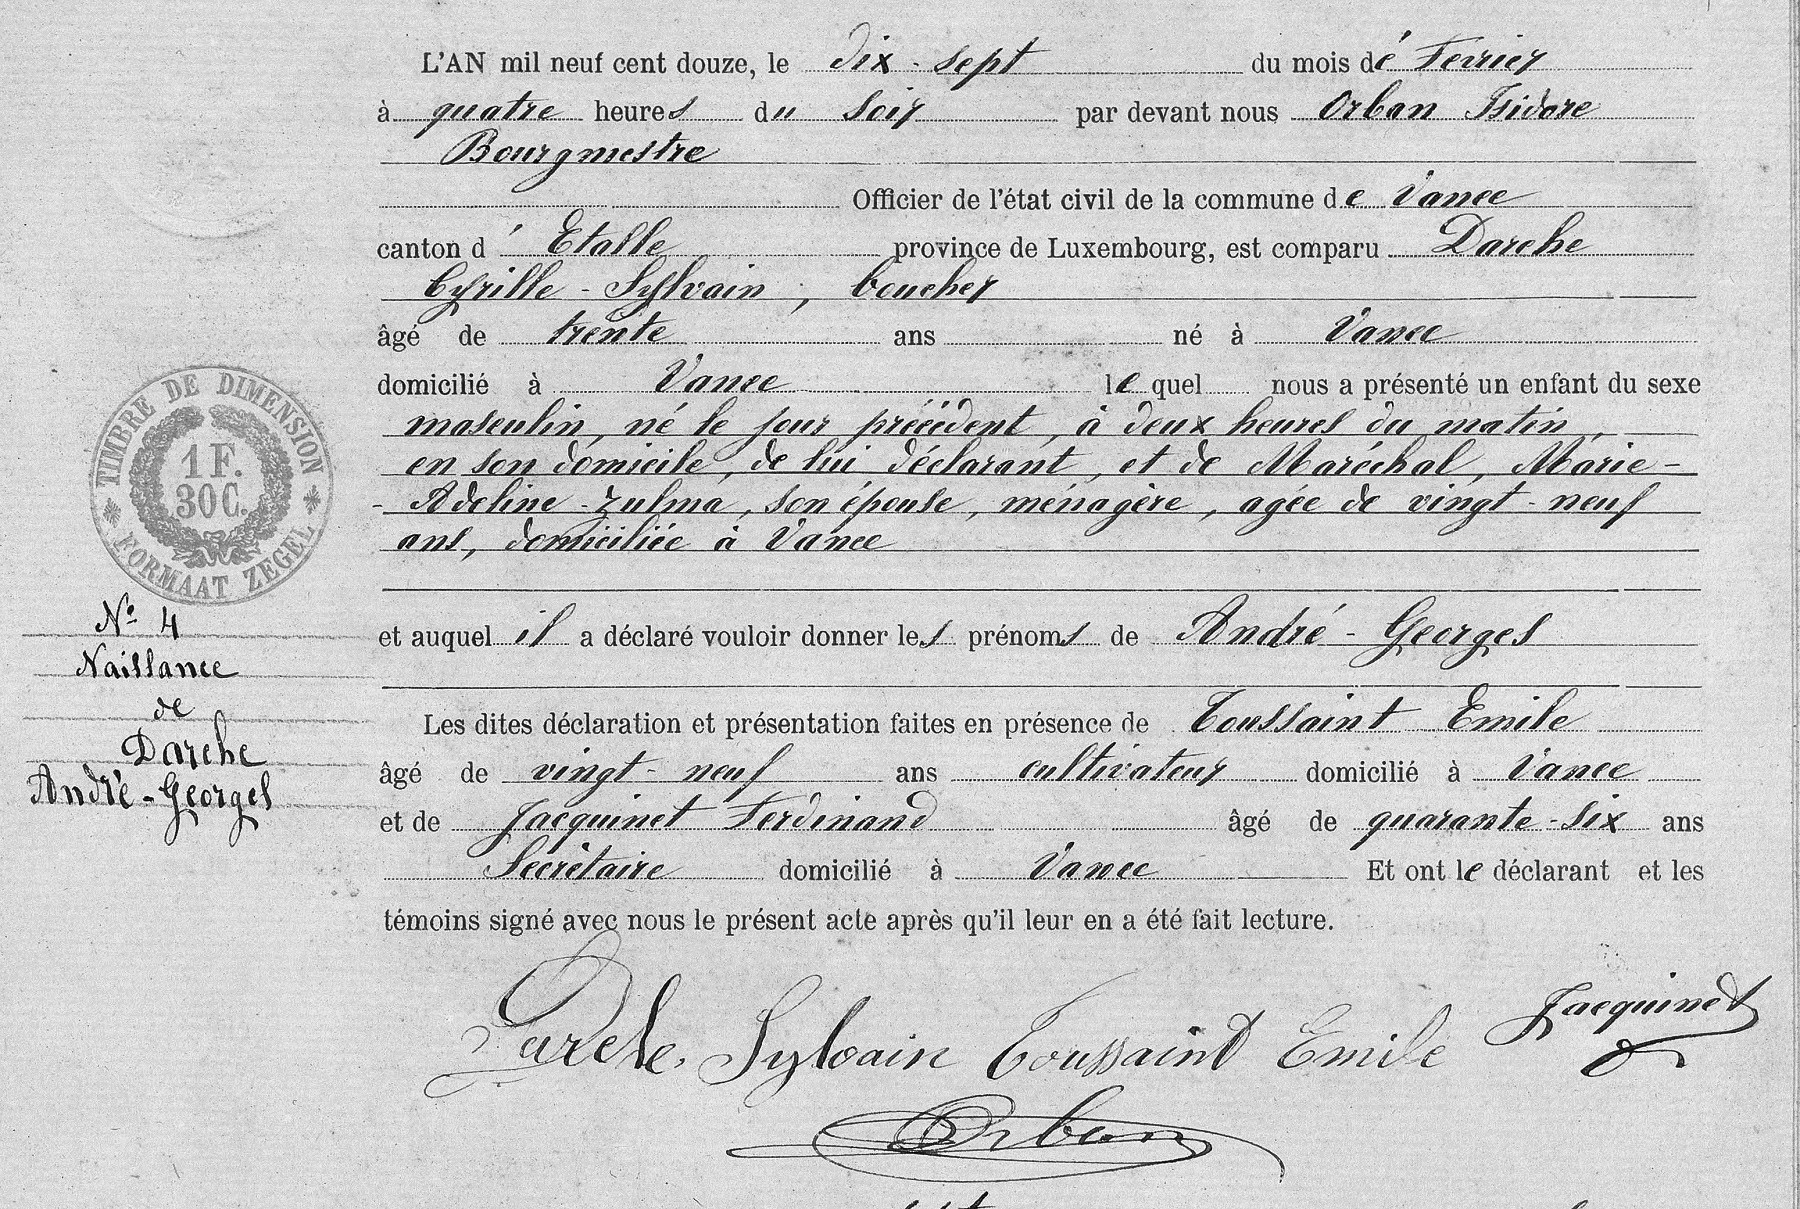 L'AN mil neuf cent douze, le dix-sept du mois de Fevrier
à quatre heures du soir par devant nous Orban Isidore
Bourgmestre
Officier de l'état civil de la commune de Vance
canton d' Etalle province de Luxembourg, est comparu Darche
Cyrille-Sylvain, boucher
âgé de trente ans né à Vance
domicilié à Vance lequel nous a présenté un enfant du sexe
masculin, né le jour précédent, à deux heures du matin,
en son domicile, de lui déclarant, et de Maréchal, Marie-
-Adeline-Zulma, son épouse, ménagère, agée de vingt-neuf
ans, domiciliée à Vance
TIMBRE DE DIMENSION
1 F.
30 C.
FORMAAT ZEGEL
No 4
Naissance
de
Darche
André-Georges
et auquel il a déclaré vouloir donner les prénoms de André-Georges
Les dites déclaration et présentation faites en présence de Toussaint Emile
âgé de vingt-neuf ans cultivateur domicilié à Vance
et de Jacquinet Ferdinand âgé de quarante-six ans
Secrétaire domicilié à Vance Et ont le déclarant et les
témoins signé avec nous le présent acte après qu'il leur en a été fait lecture.
Darche Sylvain Toussaint Emile Jacquinet
Orban